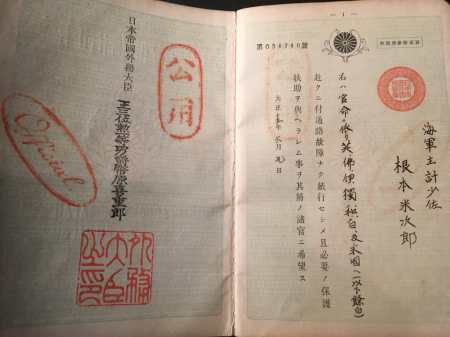 1
海軍主計少佐
根本米次郎
右ハ官命ニ依リ英佛伊獨白及米國ヘ(以下餘白)
赴クニ付通路故障ナク旅行セシメ且必要ノ保護
扶助ヲ與ヘラレム事ヲ其筋ノ諸官ニ希望ス
大正年月日
日本帝國外務大臣
三位勲等男爵幣原喜重郎
公用
Official
外務大臣之印